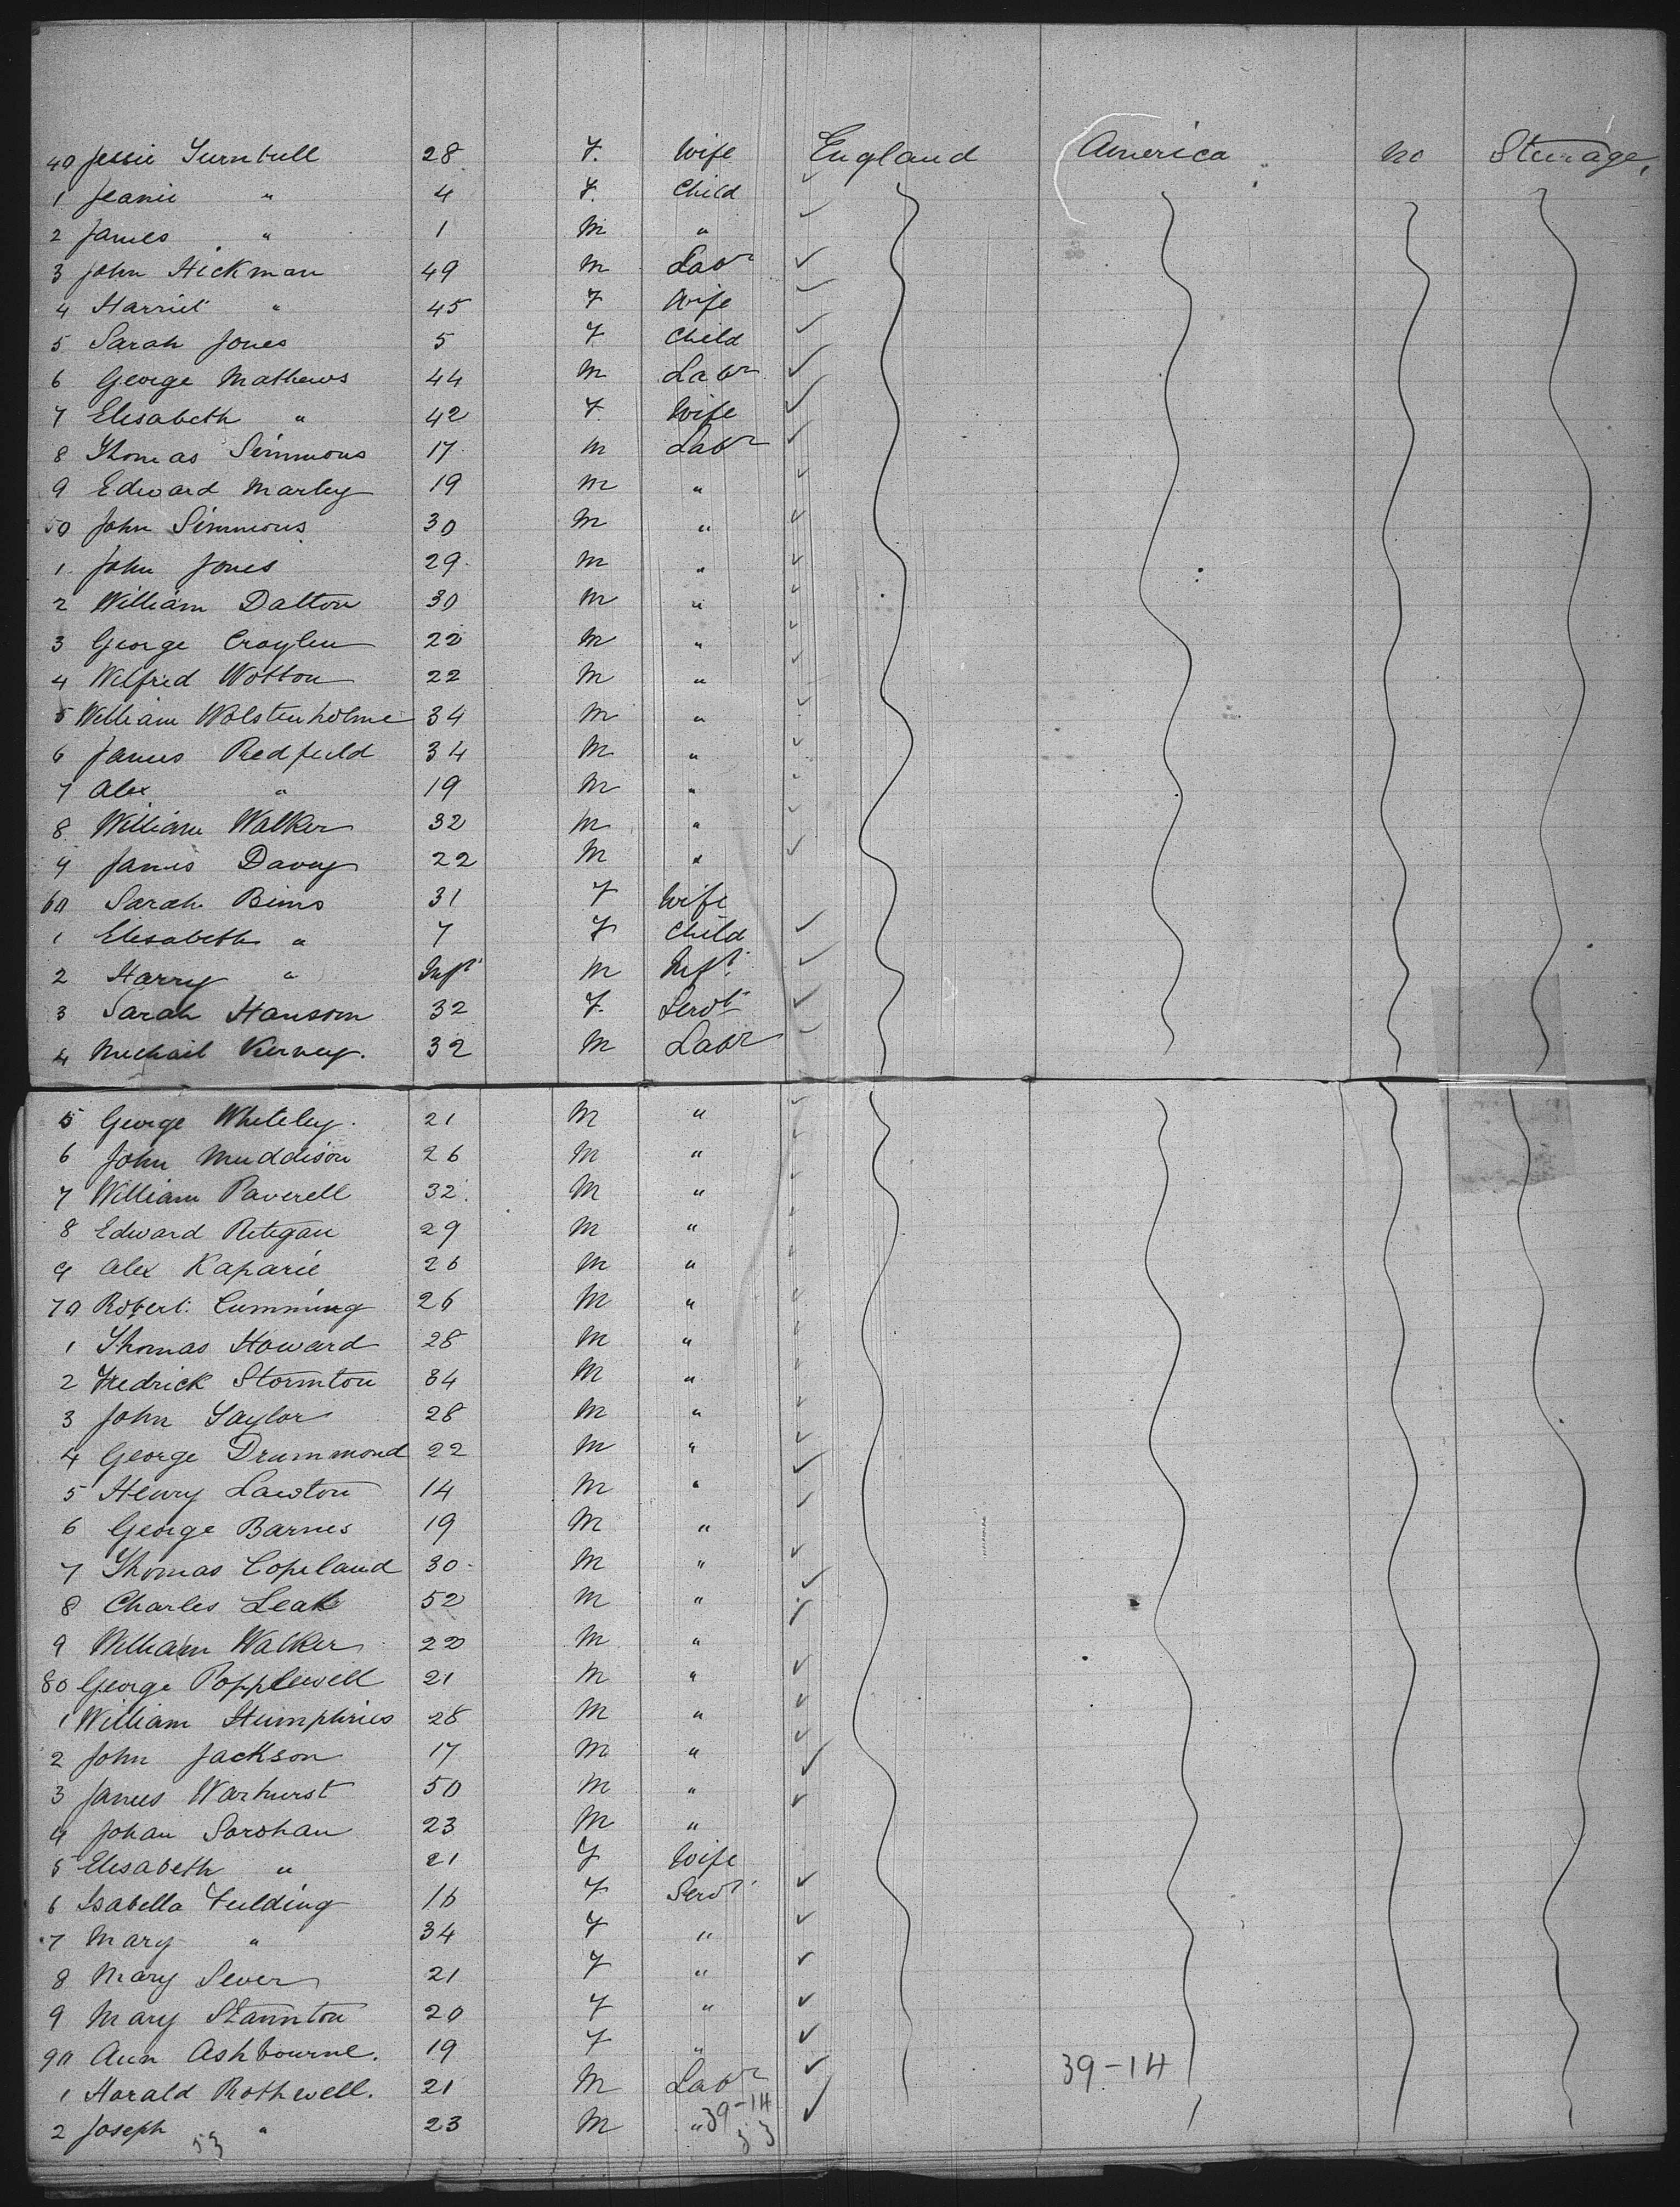 40 Jessie Turnbull 28 F. Wife England America no Steerage,
1 Jeanie " 4 F. Child
2 James " 1 M "
3 John Hickman 49 M Labr
4 Harriet " 45 F Wife
5 Sarah Jones 5 F Child
6 George Mathews 44 M Labr
7 Elisabeth " 42 F Wife
8 Thomas Simmons 17 M Labr
9 Edward Marley 19 M "
50 John Simmons 30 M "
1 John Jones 29 M "
2 William Dalton 30 M "
3 George Craylen 22 M "
4 Wilfred Wotton 22 M "
5 William Wolstenholme 34 M "
6 James Redfield 34 M "
7 Alex " 19 M "
8 William Walker 32 M "
9 James Davey 22 M "
60 Sarah Bims 31 F Wife
1 Elisabeth " 7 F Child
2 Harry " Inft M Inft.
3 Sarah Hanson 32 F. Servt
4 Michail Kerney. 32 M Labr
5 George Whiteley. 21 M "
6 John Muddison 26 M "
7 William Paverell 32 M "
8 Edward Retegan 29 M "
9 Alex Kaparie 26 M "
70 Robert Cumming 26 M "
1 Thomas Howard 28 M "
2 Fredrick Stornton 34 M "
3 John Taylor 28 M "
4 George Drummond 22 M "
5 Henry Lawton 14 M "
6 George Barnes 19 M "
7 Thomas Copeland 30 M "
8 Charles Leak 52 M "
9 William Walker 22 M "
80 George Popplewell 21 M "
1 William Humphries 28 M "
2 John Jackson 17 M "
3 James Warhurst 50 M "
4 Johan Sorohan 23 M "
5 Elisabeth " 21 F Wife
6 Isabella Feilding 16 F Servt
7 Mary " 34 F "
8 Mary Sever 21 F "
9 Mary Stannton 20 F "
90 Ann Ashbourne. 19 F "
1 Harald Rothwell. 21 M Labr 39-14
2 Joseph " 23 M " 39-14
53 33